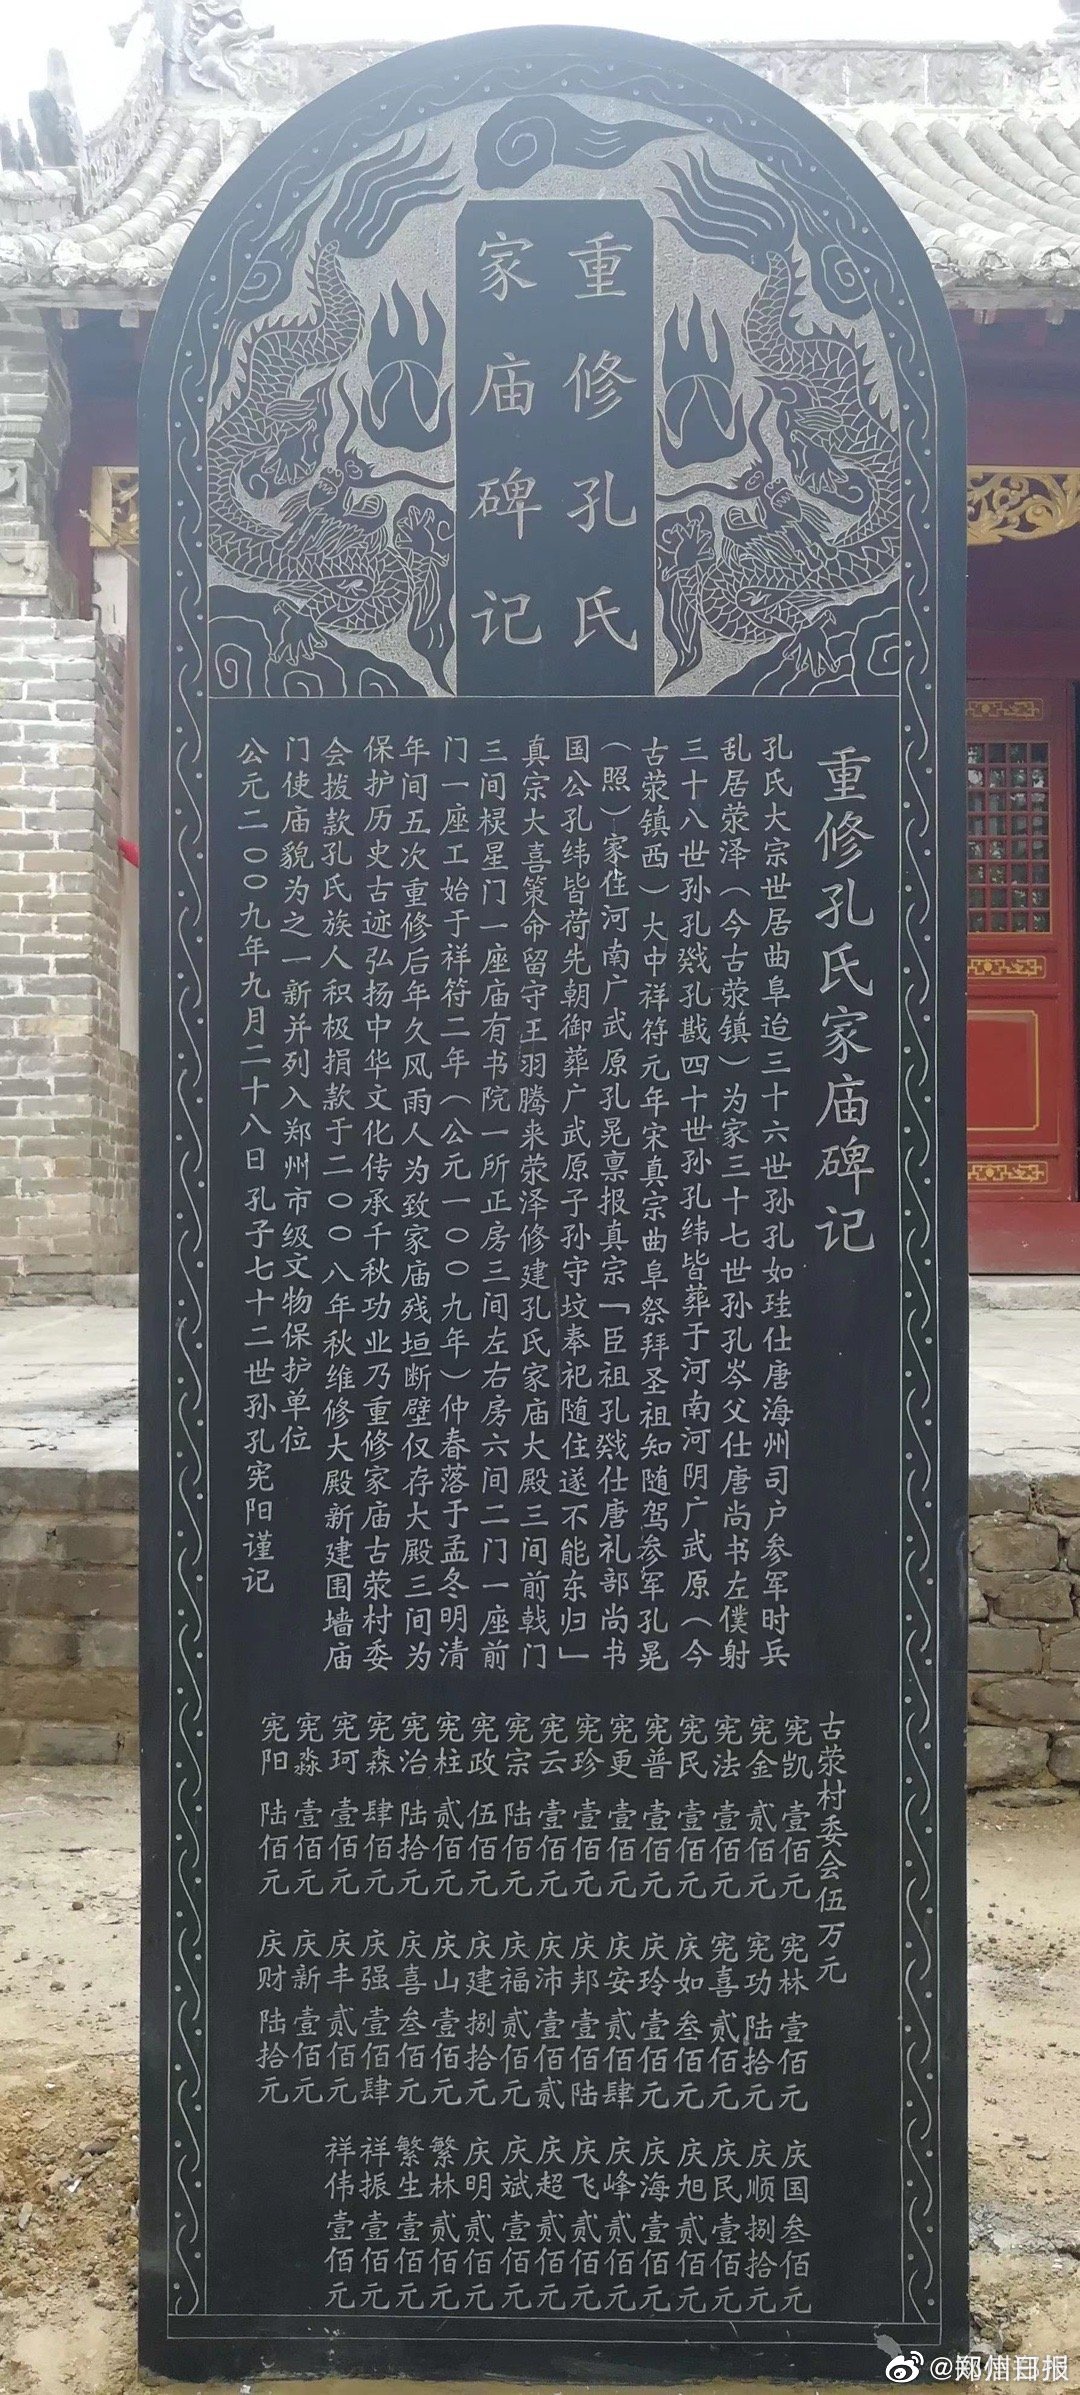 重修孔氏
家庙碑记
重修孔氏家庙碑记
孔氏大宗世居曲阜迨三十六世孙孔如珪仕唐海州司户参军时兵
乱居荥泽（今古荥镇）为家三十七世孙孔岑父仕唐尚书左僕射
三十八世孙孔戣孔戡四十世孙孔纬皆葬于河南河阴广武原（今
古荥镇西）大中祥符元年宋真宗曲阜祭拜圣祖知随驾参军孔晃
（照）家住河南广武原孔晃禀报真宗「臣祖孔戣仕唐礼部尚书
国公孔纬皆荷先朝御葬广武原子孙守坟奉祀随住遂不能东归」
真宗大喜策命留守王羽腾来荥泽修建孔氏家庙大殿三间前戟门
三间棂星门一座庙有书院一所正房三间左右房六间二门一座前
门一座工始于祥符二年（公元一00九年）仲春落于孟冬明清
年间五次重修后年久风雨人为致家庙残垣断壁仅存大殿三间为
保护历史古迹弘扬中华文化传承千秋功业乃重修家庙古荥村委
会拨款孔氏族人积极捐款于二00八年秋维修大殿新建围墙庙
门使庙貌为之一新并列入郑州市级文物保护单位
公元二00九年九月二十八日孔子七十二世孙孔宪阳谨记
古荥村委会伍万元
宪凯 壹佰元 宪林 壹佰元 庆国 叁佰元
宪金 贰佰元 宪功 陆拾元 庆顺 捌拾元
宪法 壹佰元 宪喜 贰佰元 庆民 壹佰元
宪民 壹佰元 庆如 叁佰元 庆旭 贰佰元
宪普 壹佰元 庆玲 壹佰元 庆海 壹佰元
宪更 壹佰元 庆安 贰佰肆 庆峰 贰佰元
宪珍 壹佰元 庆邦 壹佰陆 庆飞 贰佰元
宪云 壹佰元 庆沛 壹佰贰 庆超 贰佰元
宪宗 陆佰元 庆福 贰佰元 庆斌 壹佰元
宪政 伍佰元 庆建 捌拾元 庆明 贰佰元
宪柱 贰佰元 庆山 壹佰元 繁林 贰佰元
宪治 陆拾元 庆喜 叁佰元 繁生 壹佰元
宪森 肆佰元 庆强 壹佰肆 祥振 壹佰元
宪珂 壹佰元 庆丰 贰佰元 祥伟 壹佰元
宪淼 壹佰元 庆新 壹佰元
宪阳 陆佰元 庆财 陆拾元
@郑州日报